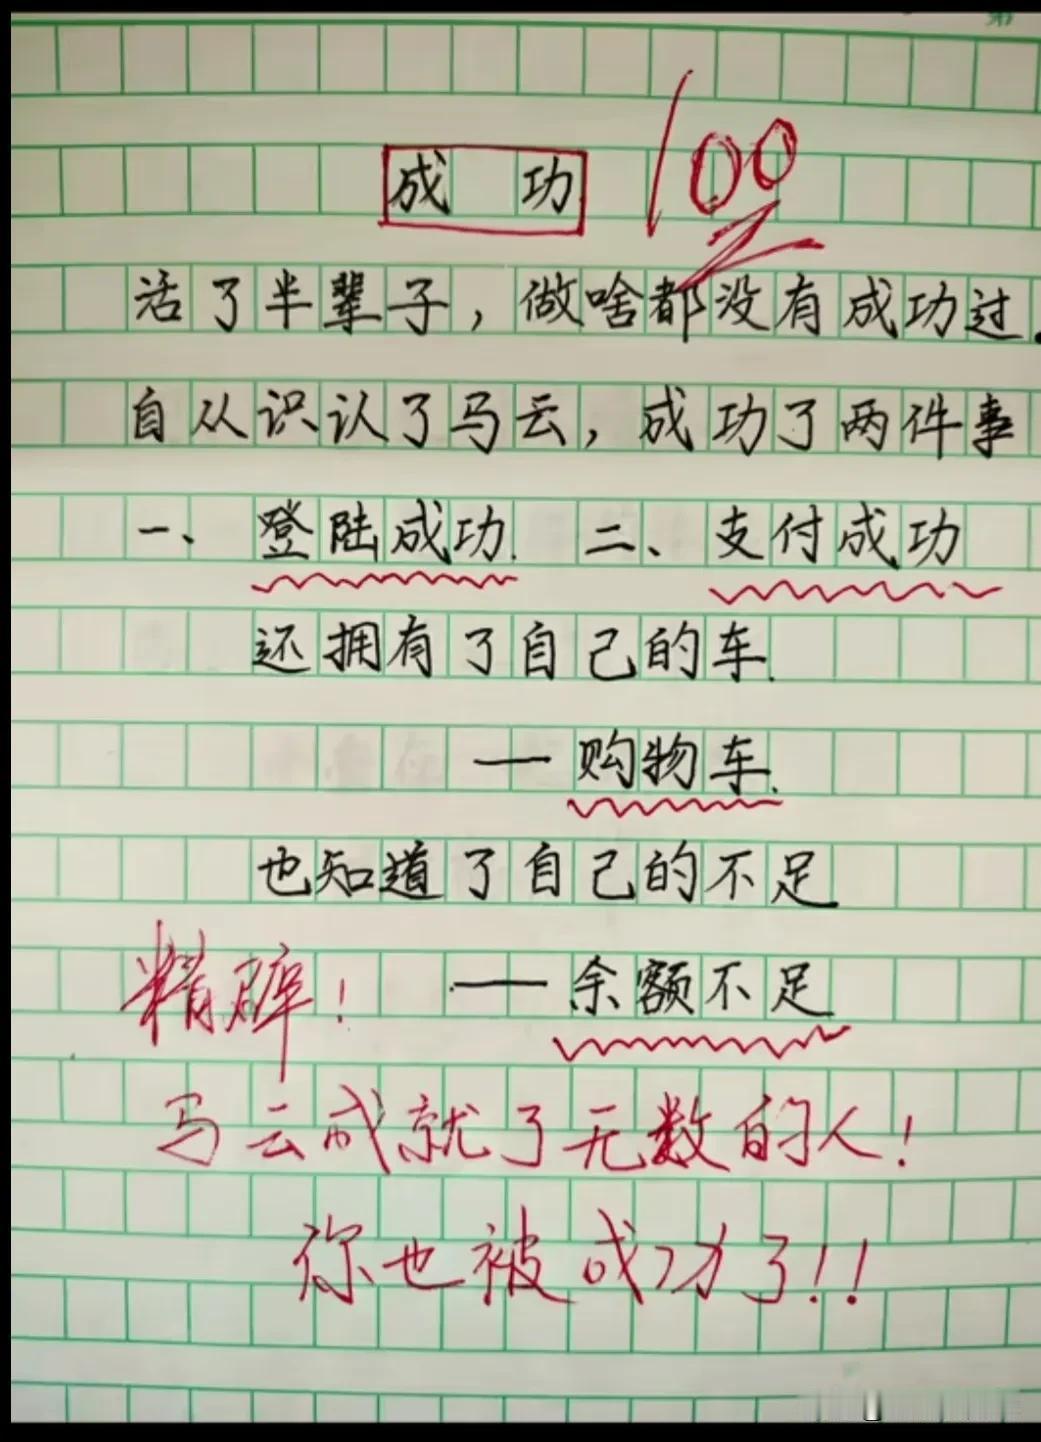 成功 100
活了半辈子，做啥都没有成功过.
自从识认了马云，成功了两件事
一、登陆成功. 二、支付成功
还拥有了自己的车.
— 购物车.
也知道了自己的不足
精辟！ — 余额不足
马云成就了无数的人！
你也被成功了！！